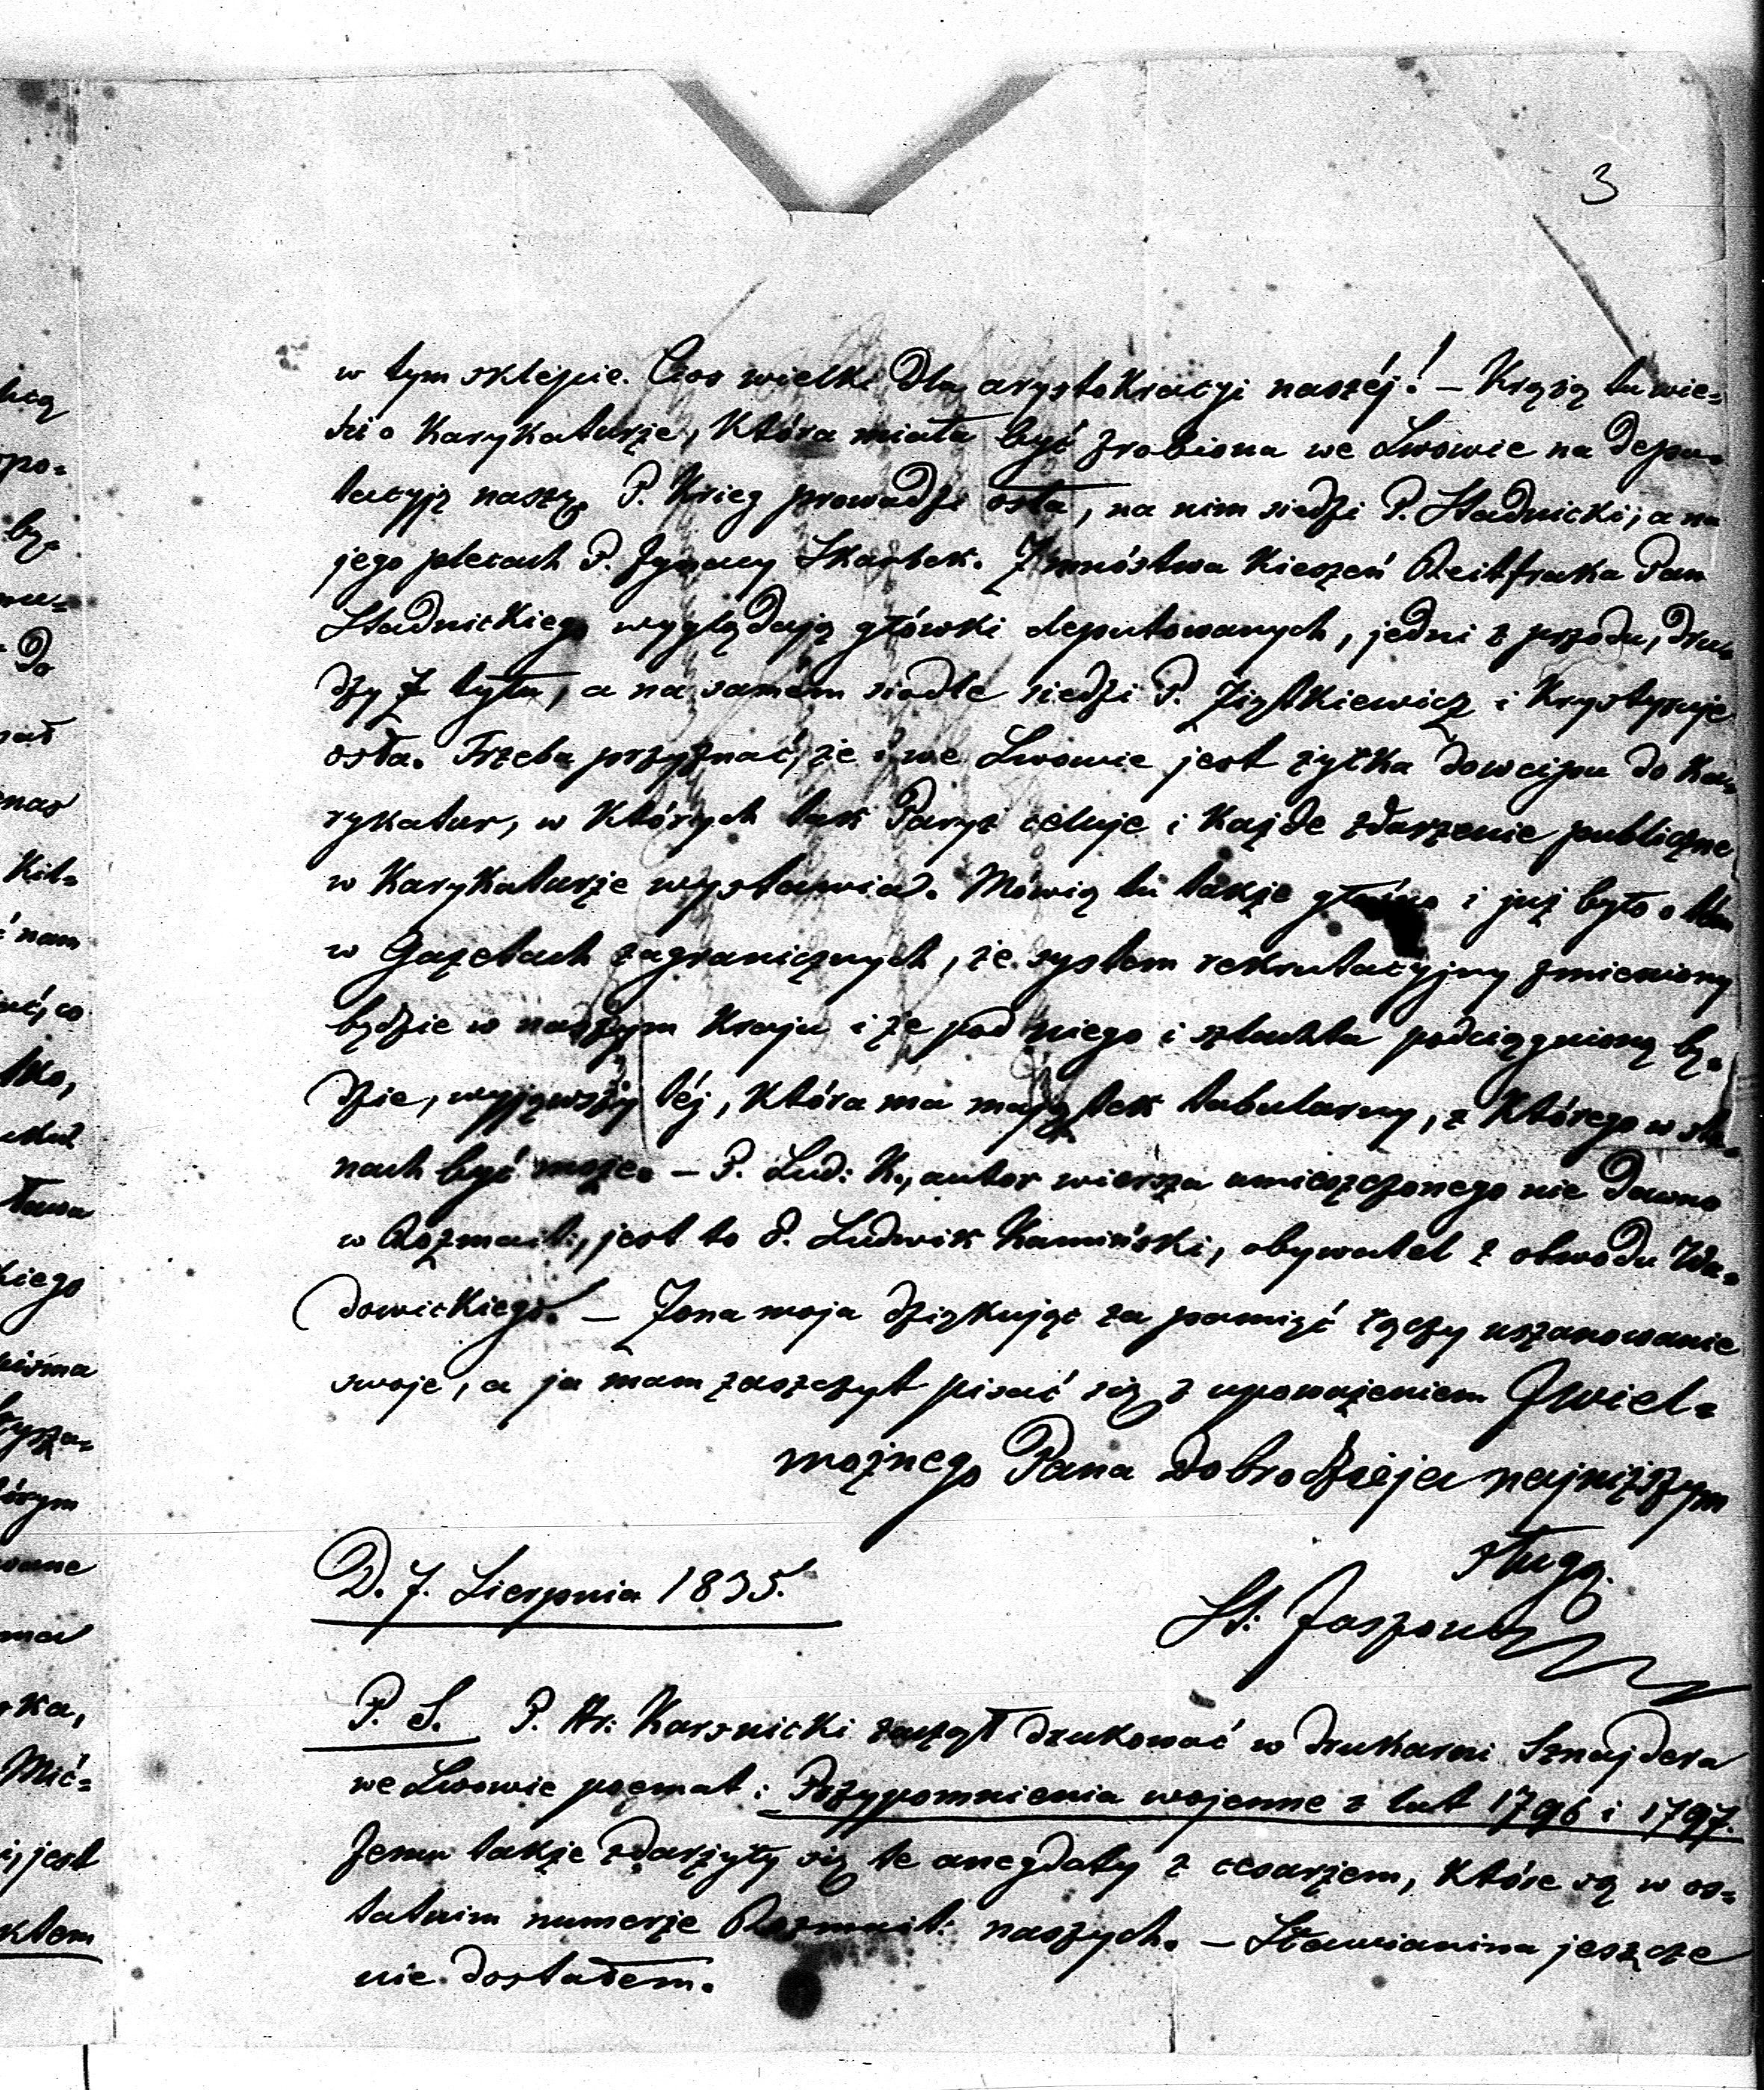 3
w tym sklepie. Cios wielki dla arystokracyi naszéj! — Krążą tu wie=
ści o karykaturze, która miała być zrobiona we Lwowie na depu=
tacyją naszę. P. Krieg prowadzi osła, na nim siedzi P. Stadnicki, a na
jego plecach P. Ignacy Skarbek. Z mnóstwa kieszeń Reitfraka Pan
Stadnickiego wyglądają główki deputowanych, jedni z przodu, dru=
dzy z tyłu, a na samém siodle siedzi P. Ziętkiewicz i krystyruje
osła. Trzeba przyznać, że i we Lwowie jest żyłka dowcipu do ka=
rykatur, w których tak Paryż celuje i każde zdarzenie publiczne
w karykaturze wystawia. Mówią tu także głośno i już było o tém
w Gazetach zagranicznych, że system rekrutacyjny zmieniony
będzie w naszym kraju i że pod niego i szlachta podciągnioną bę=
dzie, wyjąwszy téj, która ma majątek tabularny, z którego w sta=
nach być może. — P. Lud: K., autor wiersza umieszczonego nie dawno
w Rozmait:, jest to P. Ludwik Kamiński, obywatel z obwodu Wa=
dowickiego. — Żona moja dziękując za pamięć łączy uszanowanie
swoje, a ja mam zaszczyt pisać się z upoważeniem JWiel=
możnego Pana Dobrodzieja najniższym
sługą.
D. 7. Sierpnia 1835.
St: Jaszow
P. S. P. Kr: Karsnicki zaczął drukować w drukarni Sznajdera
we Lwowie poemat: Przypomnienia wojenne z lat 1796 i 1797.
Jemu także zdarzyły się te anegdoty z cesarzem, które są w os=
tatnim numerze Rozmait: naszych. — Sławianina jeszcze
nie dostałem.